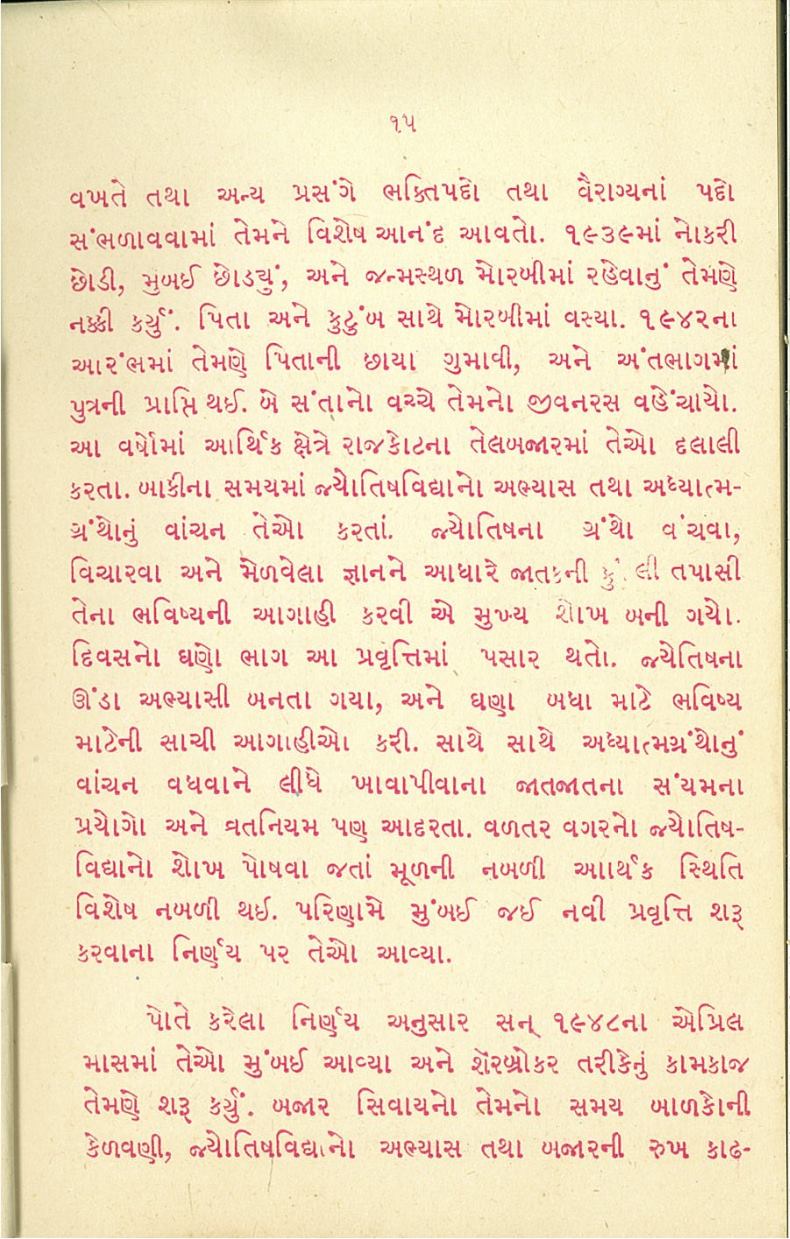 ૧૫
વખતે તથા અન્ય પ્રસંગે ભક્તિપદો તથા વૈરાગ્યનાં પદો
સંભળાવવામાં તેમને વિશેષ આનંદ આવતો. ૧૯૩૯માં નોકરી
છોડી, મુબઈ છોડ્યું, અને જન્મસ્થળ મોરબીમાં રહેવાનું તેમણે
નક્કી કર્યું. પિતા અને કુટુંબ સાથે મોરબીમાં વસ્યા. ૧૯૪૨ના
આરંભમાં તેમણે પિતાની છાયા ગુમાવી, અને અંતભાગમાં
પુત્રની પ્રાપ્તિ થઈ. બે સંતાનો વચ્ચે તેમનો જીવનરસ વહેંચાયો.
આ વર્ષોમાં આર્થિક ક્ષેત્રે રાજકોટના તેલબજારમાં તેઓ દલાલી
કરતા. બાકીના સમયમાં જ્યોતિષવિદ્યાનો અભ્યાસ તથા અધ્યાત્મ-
ગ્રંથોનું વાંચન તેઓ કરતાં. જ્યોતિષના ગ્રંથો વંચવા,
વિચારવા અને મેળવેલા જ્ઞાનને આધારે જાતકની તપાસી
તેના ભવિષ્યની આગાહી કરવી એ મુખ્ય શોખ બની ગયો.
દિવસનો ઘણો ભાગ આ પ્રવૃત્તિમાં પસાર થતો. જ્યેતિષના
ઊંડા અભ્યાસી બનતા ગયા, અને ઘણા બધા માટે ભવિષ્ય
માટેની સાચી આગાહીઓ કરી. સાથે સાથે અધ્યાત્મગ્રંથોનું
વાંચન વધવાને લીધે ખાવાપીવાના જાતજાતના સંયમના
પ્રયોગો અને વ્રતનિયમ પણ આદરતા. વળતર વગરનો જ્યોતિષ-
વિદ્યાનો શોખ પોષવા જતાં મૂળની નબળી આાર્થક સ્થિતિ
વિશેષ નબળી થઈ. પરિણામે મુંબઈ જઈ નવી પ્રવૃત્તિ શરૂ
કરવાના નિર્ણય પર તેઓ આવ્યા.
પોતે કરેલા નિર્ણય અનુસાર સન્ ૧૯૪૮ના એપ્રિલ
માસમાં તેઓ મુંબઈ આવ્યા અને શેરબ્રોકર તરીકેનું કામકાજ
તેમણે શરૂ કર્યું. બજાર સિવાયનો તેમનો સમય બાળકોની
કેળવણી, જ્યોતિષવિદ્યાનો અભ્યાસ તથા બજારની રુખ કાઢ-